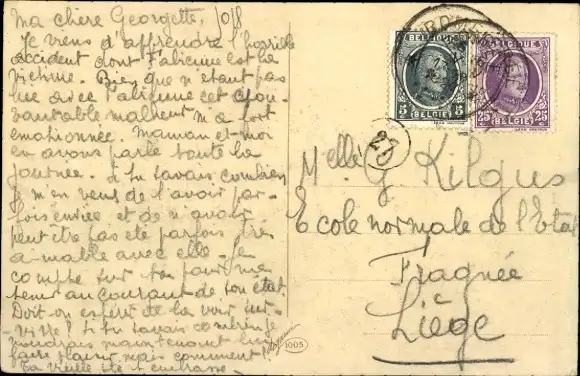 Ma chère Georgette, 1018
Je viens d'apprendre l'horrible
accident dont Fabienne est la
victime. Bien que n'étant pas
liée avec Fabienne cet épou-
vantable malheur m'a fort
émotionnée. Maman et moi
en avons parlé toute la
journée. Si tu savais combien
je m'en veux de l'avoir par-
fois enviée et de n'avoir
peut être pas été parfois très
aimable avec elle. Je
compte sur toi pour me
tenir au courant de son état.
Doit-on espérer de la voir sur-
vivre? Si tu savais comme je
voudrais maintenant lui
faire plaisir mais comment?
Ta vieille qui t'embrasse
1005
BELGIQUE
5 5
BELGIË
BELGIQUE
25 25
BELGIË
25
Melle G. Kilgus
Ecole normale de l'Etat
Fragnée
Liège